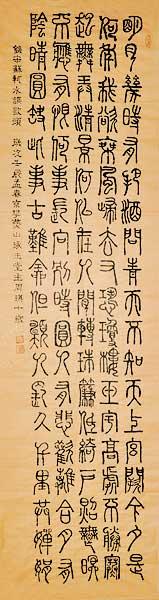 明月幾時有把酒問青天不知天上宮闕今夕是
何年我欲乘風歸去又恐瓊樓玉宇高處不勝寒
起舞弄清影何似在人間轉珠簾低綺戶照無眠
不應有恨何事長向別時圓人有悲歡離合月有
陰晴圓缺此事古難全但願人長久千里共嬋娟
錄宋蘇軾水調歌頭 歲次壬辰孟春京華燕山